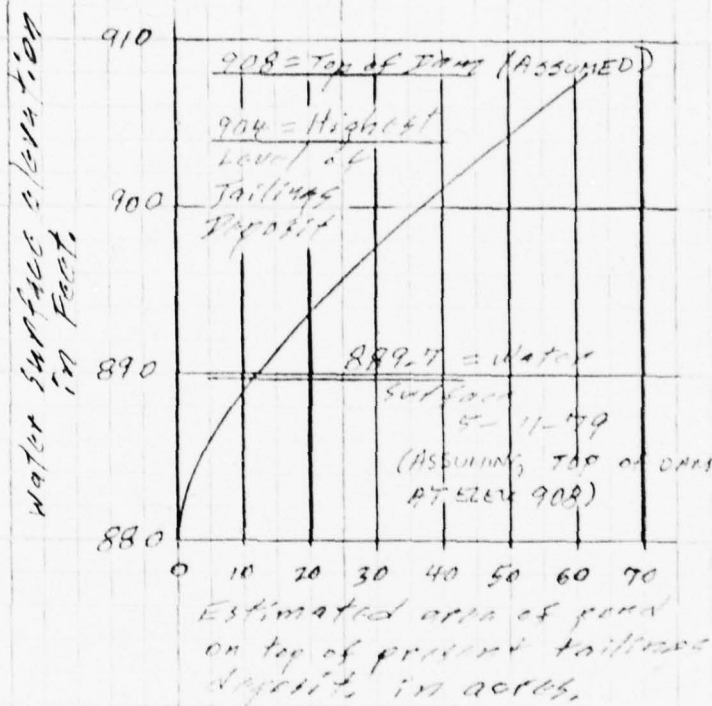 Water Surface elevation
in Feet.
910
900
890
880
908 = Top of Dam (ASSUMED)
904 = Highest
Level of
Tailings
Deposit
889.7 = Water
Surface
5-11-79
(ASSUMING TOP OF DAM
AT ELEV 908)
0 10 20 30 40 50 60 70
Estimated area of pond
on top of present tailings
deposit, in acres.